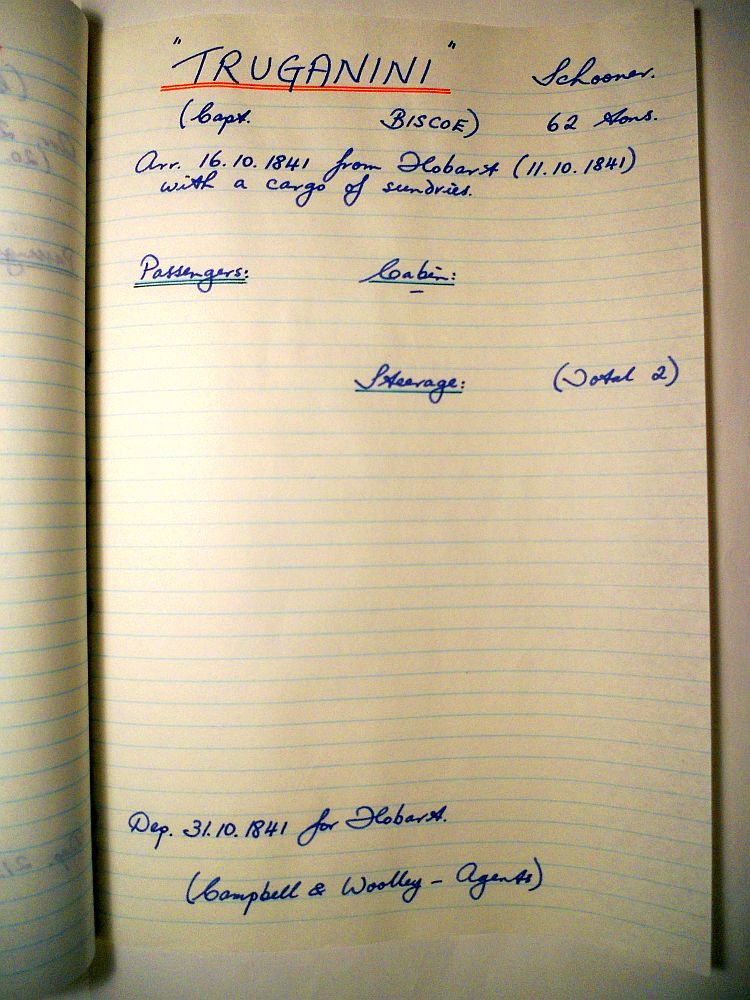 "TRUGANINI" Schooner.
(Capt. BISCOE) 62 tons.
Arr. 16.10.1841 from Hobart (11.10.1841)
with a cargo of sundries.
Passengers: Cabin:
–
Steerage: (Total 2)
Dep. 31.10.1841 for Hobart.
(Campbell & Woolley – Agents)